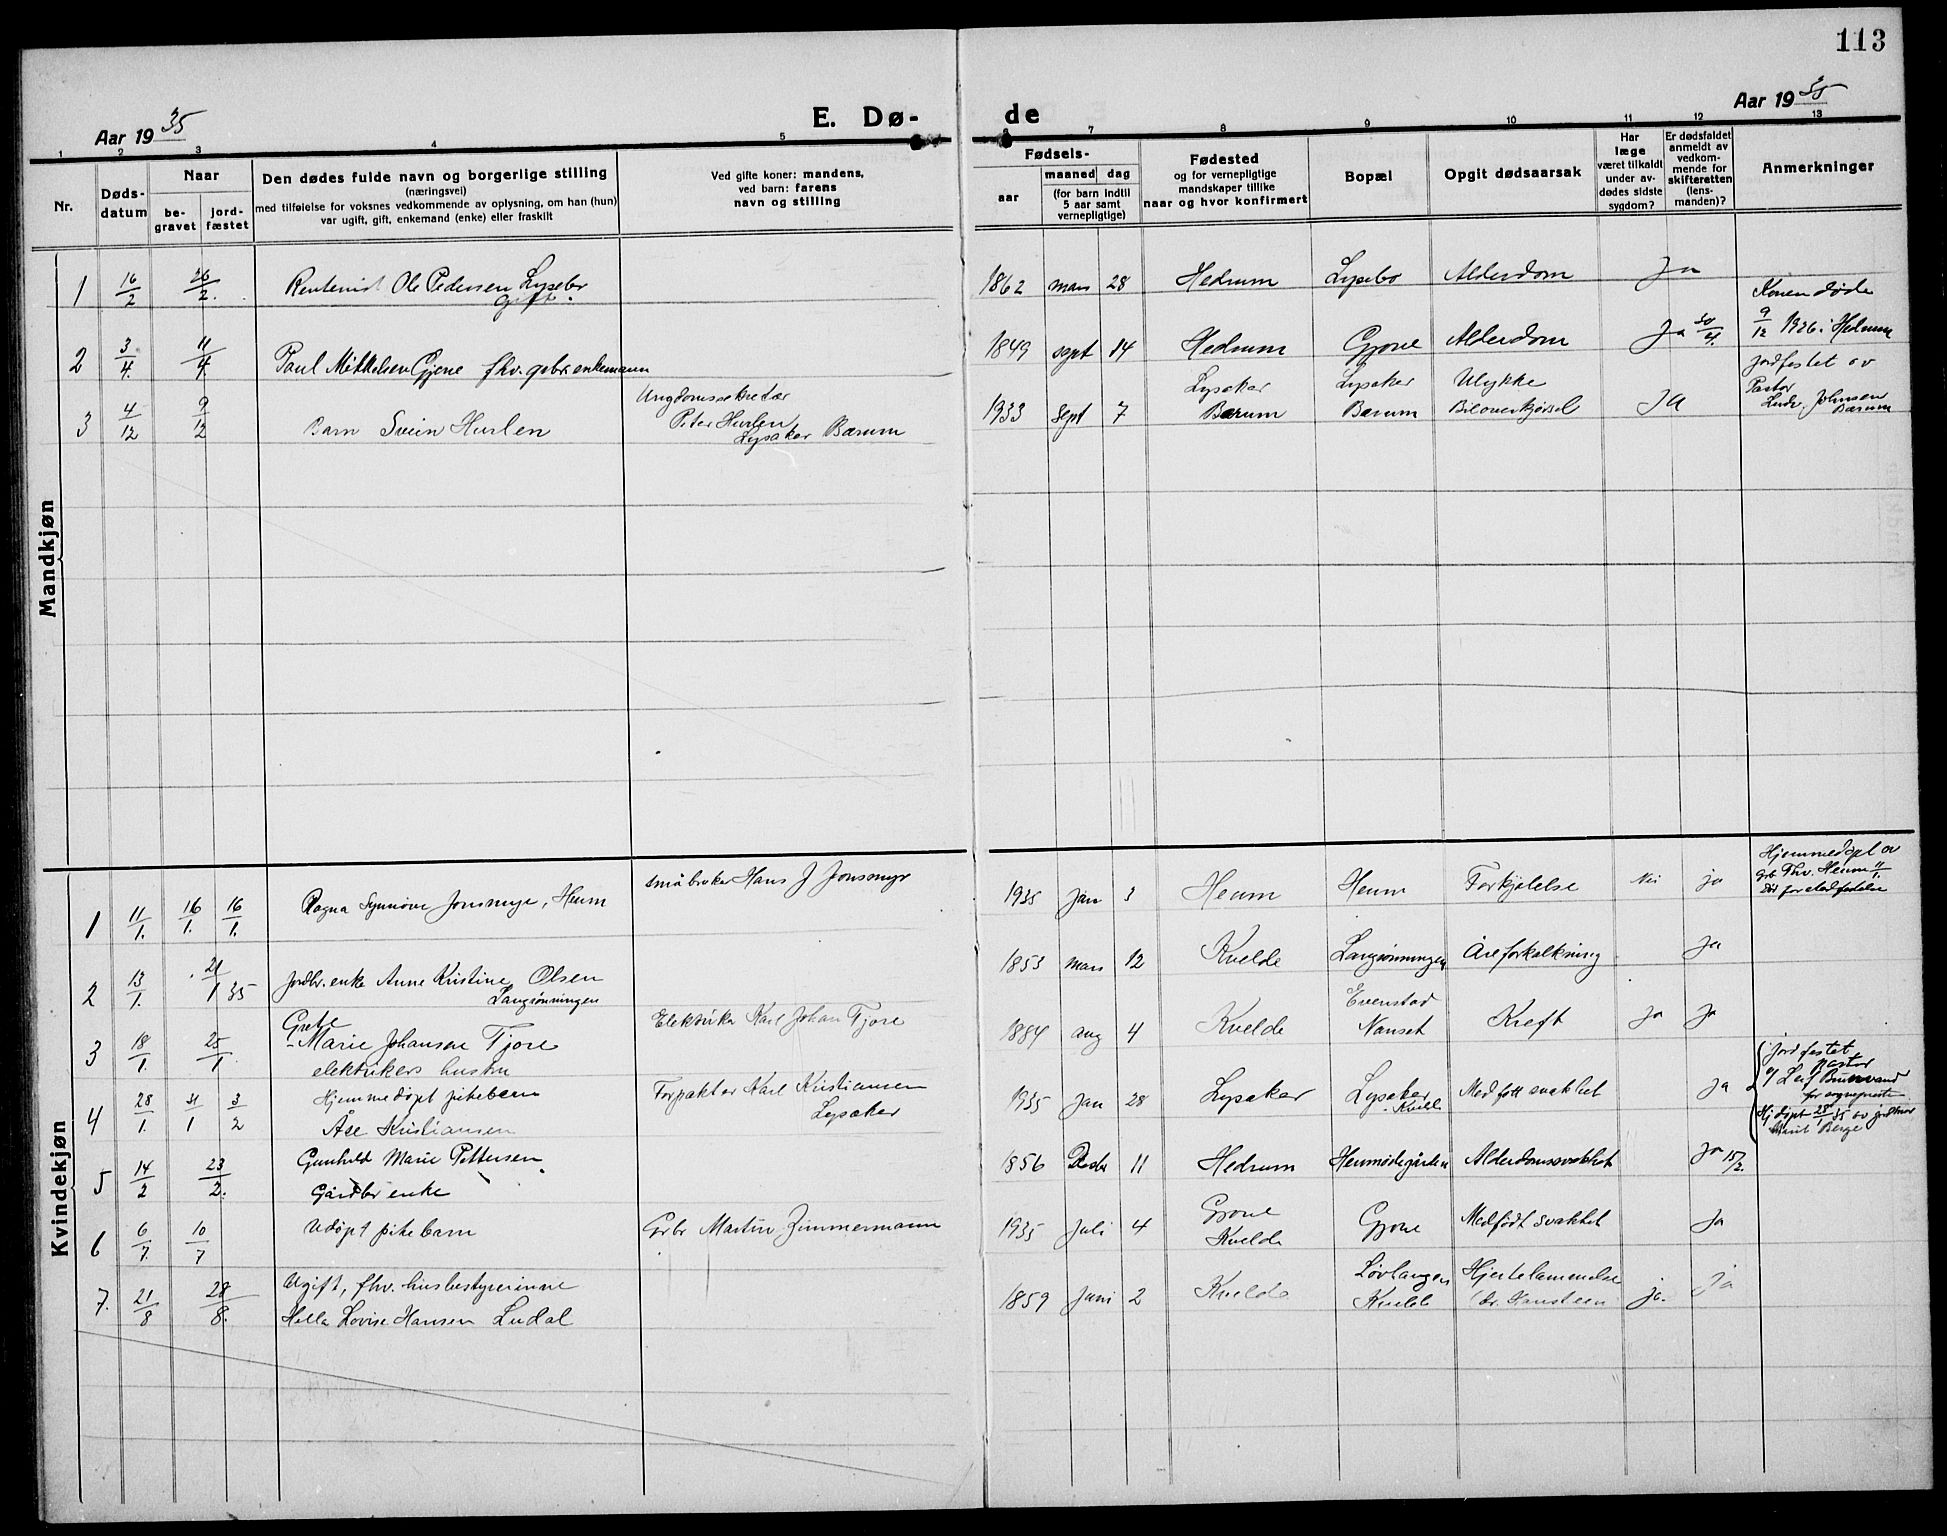 113
Aar 1935
E. Dø-
de
Aar 1935
1 2 3 4 5 6 7 8 9 10 11 12 13
Nr.
Døds-
datum
Naar
be-
gravet
jord-
fæstet
Den dødes fulde navn og borgerlige stilling
(næringsvei)
med tilføielse for voksnes vedkommende av oplysning, om han (hun)
var ugift, gift, enkemand (enke) eller fraskilt
Ved gifte koner: mandens,
ved barn: farens
navn og stilling
Fødsels-
aar
maaned dag
(for barn indtil
5 aar samt
vernepligtige)
Fødested
og for vernepligtige
mandskaper tillike
naar og hvor konfirmert
Bopæl
Opgit dødsaarsak
Har
læge
været tilkaldt
under av-
dødes sidste
sygdom?
Er dødsfaldet
anmeldt av
vedkom-
mende for
skifteretten
(lens-
manden)?
Anmerkninger
Mandkjøn
1 16/2 26/2. Rentenist Ole Pedersen Lysebo 1862 mars 28 Hedrum Lysebo Alderdom Ja
gift.
2 3/4. 11/4. Paul Mikkelsen Gjone fhv. gbr. enkemann 1849 sept 14 Hedrum Gjone Alderdom Ja 30/4. Konen døde
9/12 1926 i Hedrum
3 4/12 9/12 Barn Svein Hurlen Ungdomssekretær
Peter Hurlen
Lysaker Bærum
1933 Sept 7 Lysaker
Bærum
Lysaker
Bærum
Ulykke
Biloverkjørsel
Ja
jordfestet av
Pastor
Ludv. Johnsen
Bærum
Kvindekjøn
1 11/1. 16/1. 16/1. Ragna Synnøve Jonsmyr, Heum småbruker Hans J Jonsmyr 1935 Jan 3 Heum Heum Forkjølelse Nei ja Hjemmedøpt av
grb Thv. Heum 11/1.
Død for stadfestelse
2 13/1. 21/1 35 Jordbr. enke Anne Kristine Olsen
Langrønningen
1853 mars 12 Kvelde Langrønningen Åreforkalkning Ja
3 18/1. 25/1 Grete
Marie Johansen Tjore
elektrikers hustru
Elektriker Karl Johan Tjore 1884 aug 4 Kvelde Evenstad
Nanset
Kreft Ja Ja
4 28/1. 31/1 3/2 Hjemmedøpt pikebarn
Åse Kristiansen
Forpakter Karl Kristiansen
Lysaker
1935 Jan 28 Lysaker Lysaker
Kvelde
Medfött svakhet Ja
Jordfestet
Pastor
Leif Brunvand
for sogneprest
Hj døpt 28/1 35 av jordmor
Marit Berge
5 14/2 23/2. Gunhild Marie Pettersen
Gårdbr enke
1856 Desbr 11 Hedrum Heumødegården Alderdomssvakhet Ja 15/2.
6 6/7. 10/7 Udøpt pikebarn Grbr Martin Zimmermann 1935 Juli 4 Gjone
Kvelde
Gjone Medfødt svakhet Ja
7. 21/8 28/8. Ugift, fhv. husbestyrerinne
Hella Lovise Hansen Ludal
1859 Juni 2 Kvelde Løvlangen
Kvelde
Hjertelammelse
(dr. Hansteen
ja. Ja